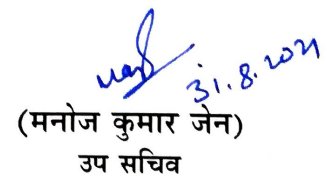 31.8.2021
(मनोज कुमार जेन)
उप सचिव